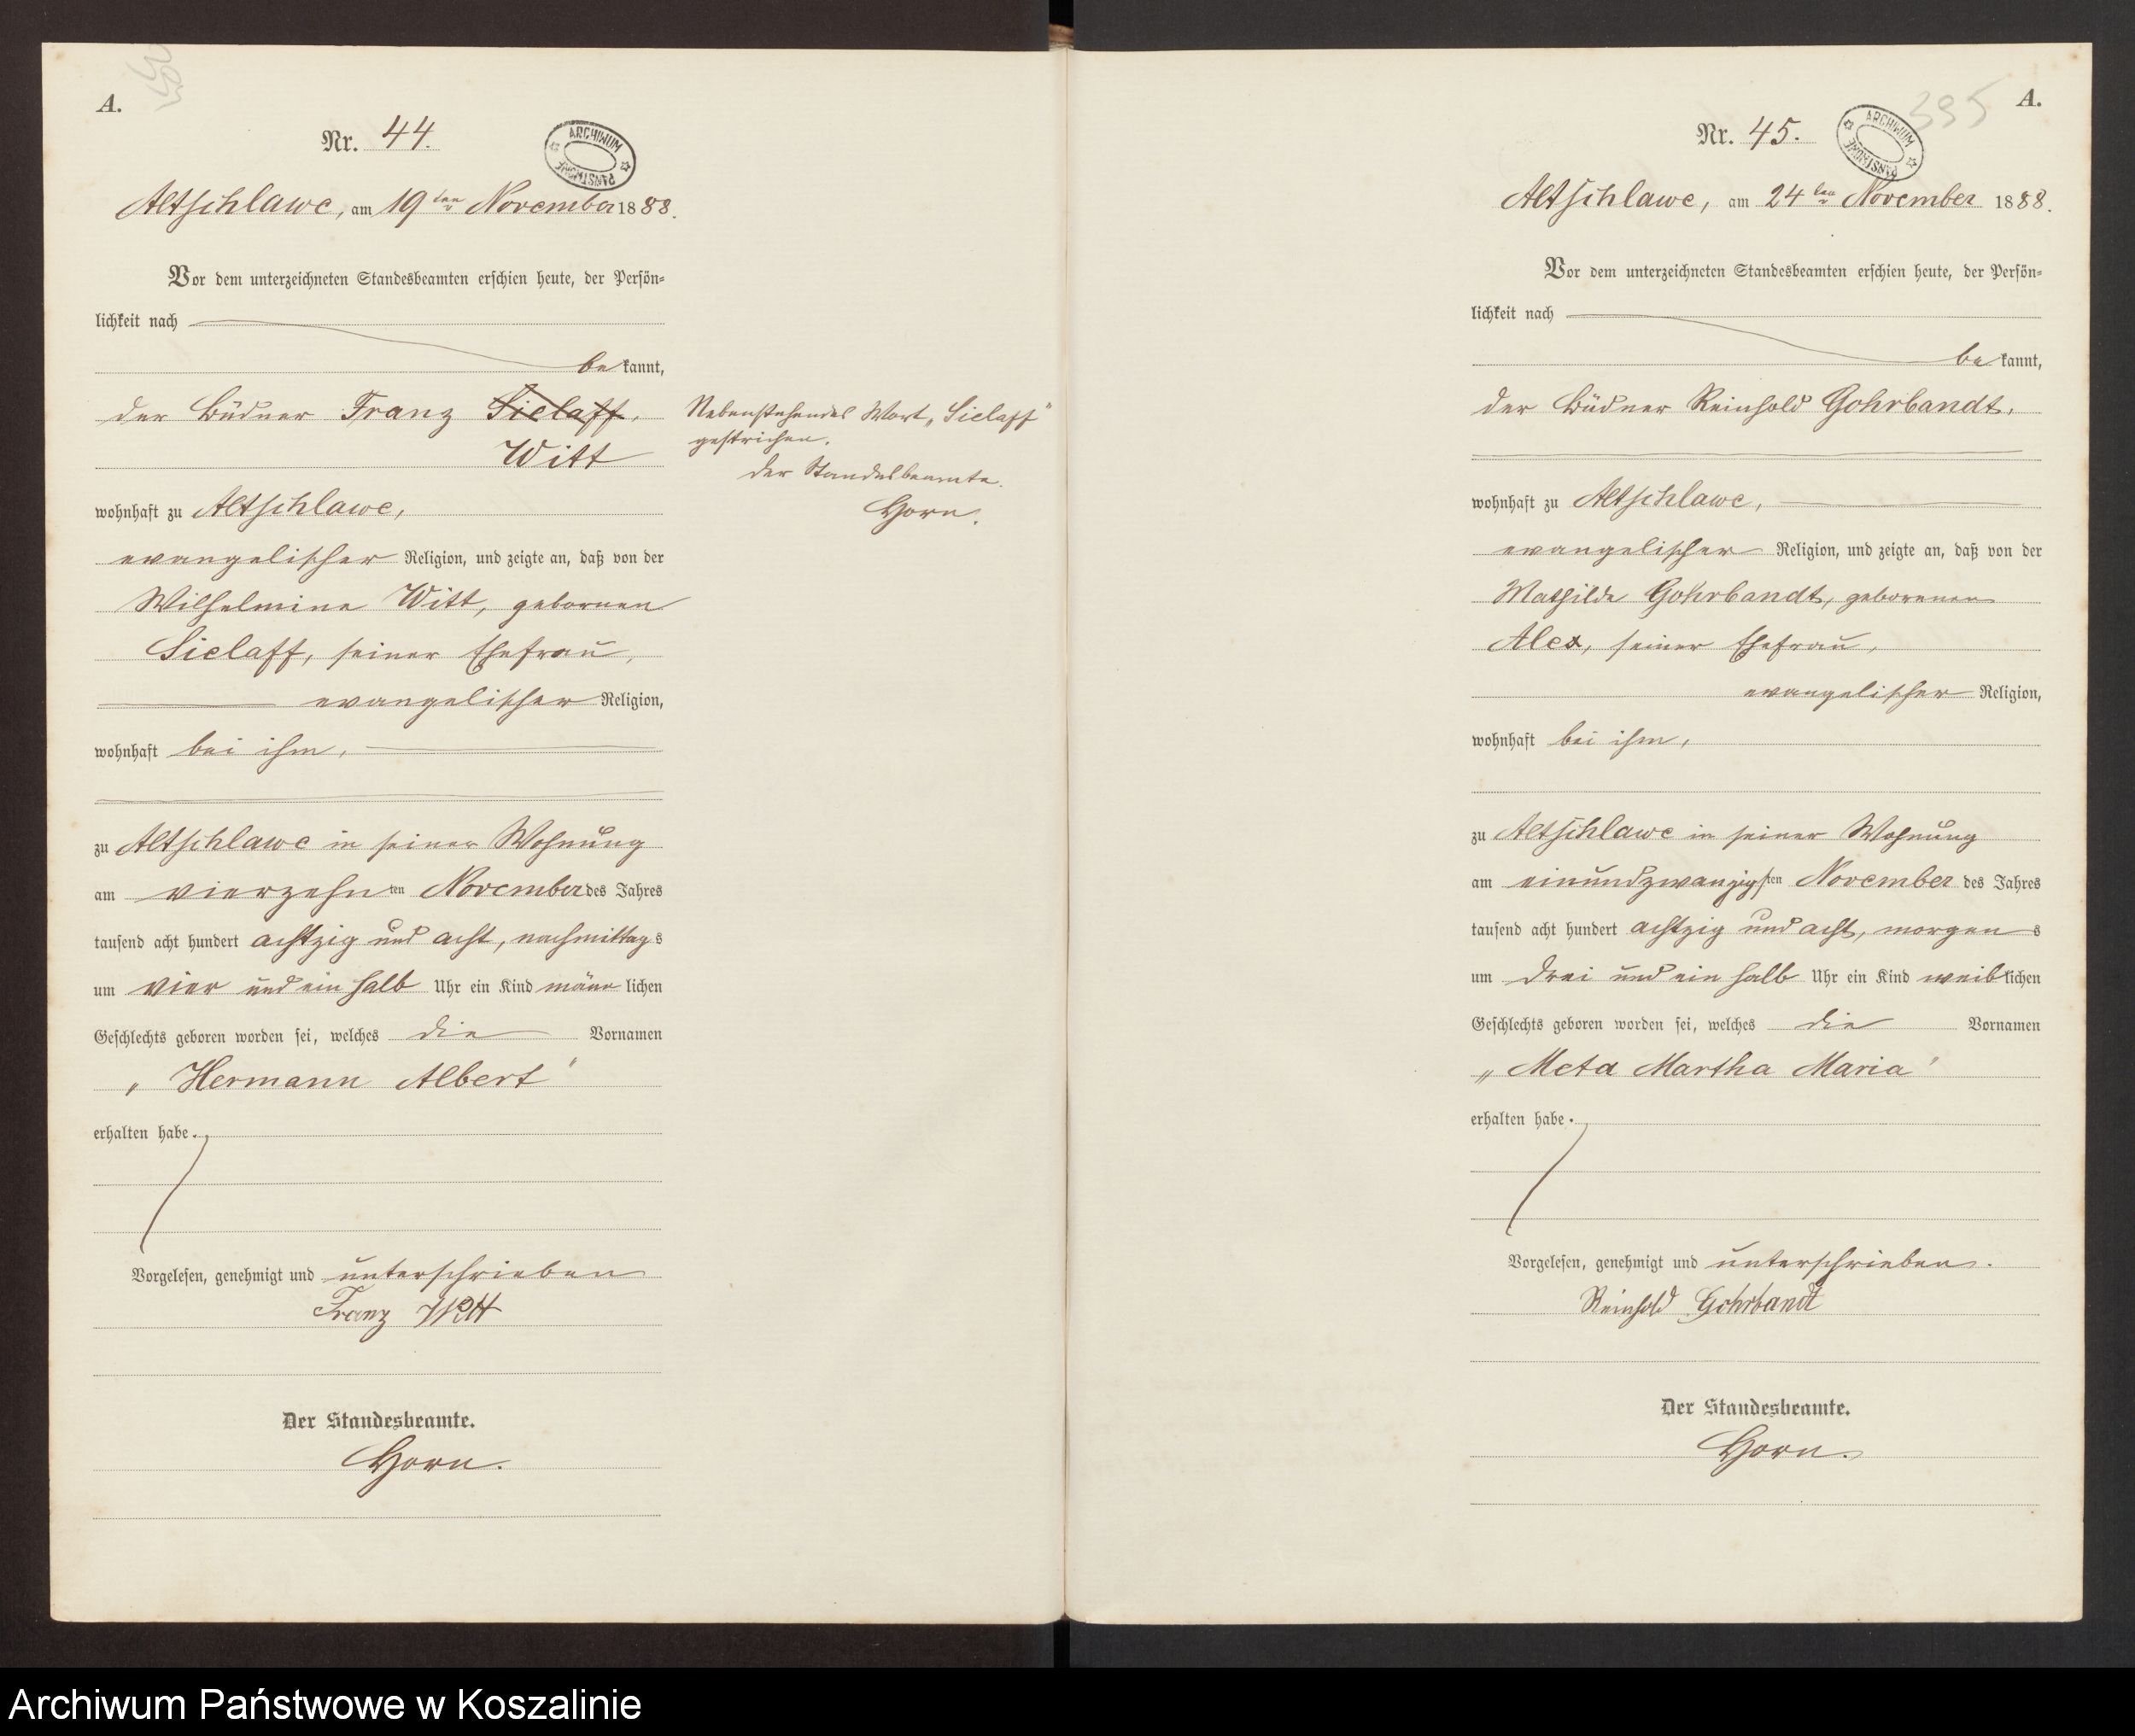 A.
Nr. 44.
ARCHIWUM PAŃSTWOWE
Altschlawe, am 19ten November 1888.
Vor dem unterzeichneten Standesbeamten erschien heute, der Persön-
lichkeit nach
bekannt,
der Büdner Franz Sielaff,
Witt
wohnhaft zu Altschlawe,
evangelischer Religion, und zeigte an, daß von der
Wilhelmine Witt, gebornen
Sielaff, seiner Ehefrau,
evangelischer Religion,
wohnhaft bei ihm,
zu Altschlawe in seiner Wohnung
am vierzehnten November des Jahres
tausend acht hundert achtzig und acht, nachmittags
um vier und ein halb Uhr ein Kind männlichen
Geschlechts geboren worden sei, welches die Vornamen
„Hermann Albert"
erhalten habe.
Vorgelesen, genehmigt und unterschrieben
Franz Witt
Der Standesbeamte.
Horn.
Nebenstehendes Wort „Sielaff"
gestrichen.
Der Standesbeamte.
Horn.
395
A.
Nr. 45.
ARCHIWUM PAŃSTWOWE
Altschlawe, am 24ten November 1888.
Vor dem unterzeichneten Standesbeamten erschien heute, der Persön-
lichkeit nach
bekannt,
der Büdner Reinhold Gohrbandt,
wohnhaft zu Altschlawe,
evangelischer Religion, und zeigte an, daß von der
Mathilde Gohrbandt, geborenen
Alex, seiner Ehefrau,
evangelischer Religion,
wohnhaft bei ihm,
zu Altschlawe in seiner Wohnung
am einundzwanzigsten November des Jahres
tausend acht hundert achtzig und acht, morgens
um drei und ein halb Uhr ein Kind weiblichen
Geschlechts geboren worden sei, welches die Vornamen
„Meta Martha Maria"
erhalten habe.
Vorgelesen, genehmigt und unterschrieben.
Reinhold Gohrbandt
Der Standesbeamte.
Horn.
Archiwum Państwowe w Koszalinie